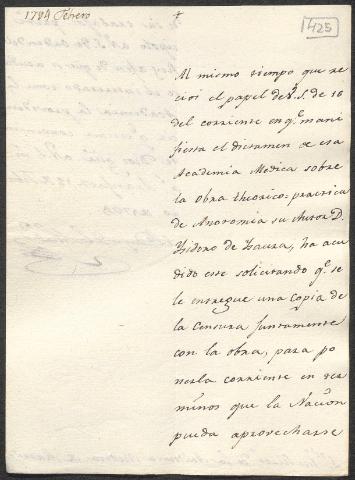 1794 Febrero
+
1425
Al mismo tiempo que re
civi el papel de V. S. de 10
del corriente en q.e mani
fiesta el dictamen de esa
Academia Medica sobre
la obra theorico=practica
de Anatomia su Autor D.
Ysidoro de Isaura, ha acu
dido este solicitando q.e se
le entregue una copia de
la Censura juntamente
con la obra, para po
nerla corriente en ter
minos que la Nación
pueda aprovecharse